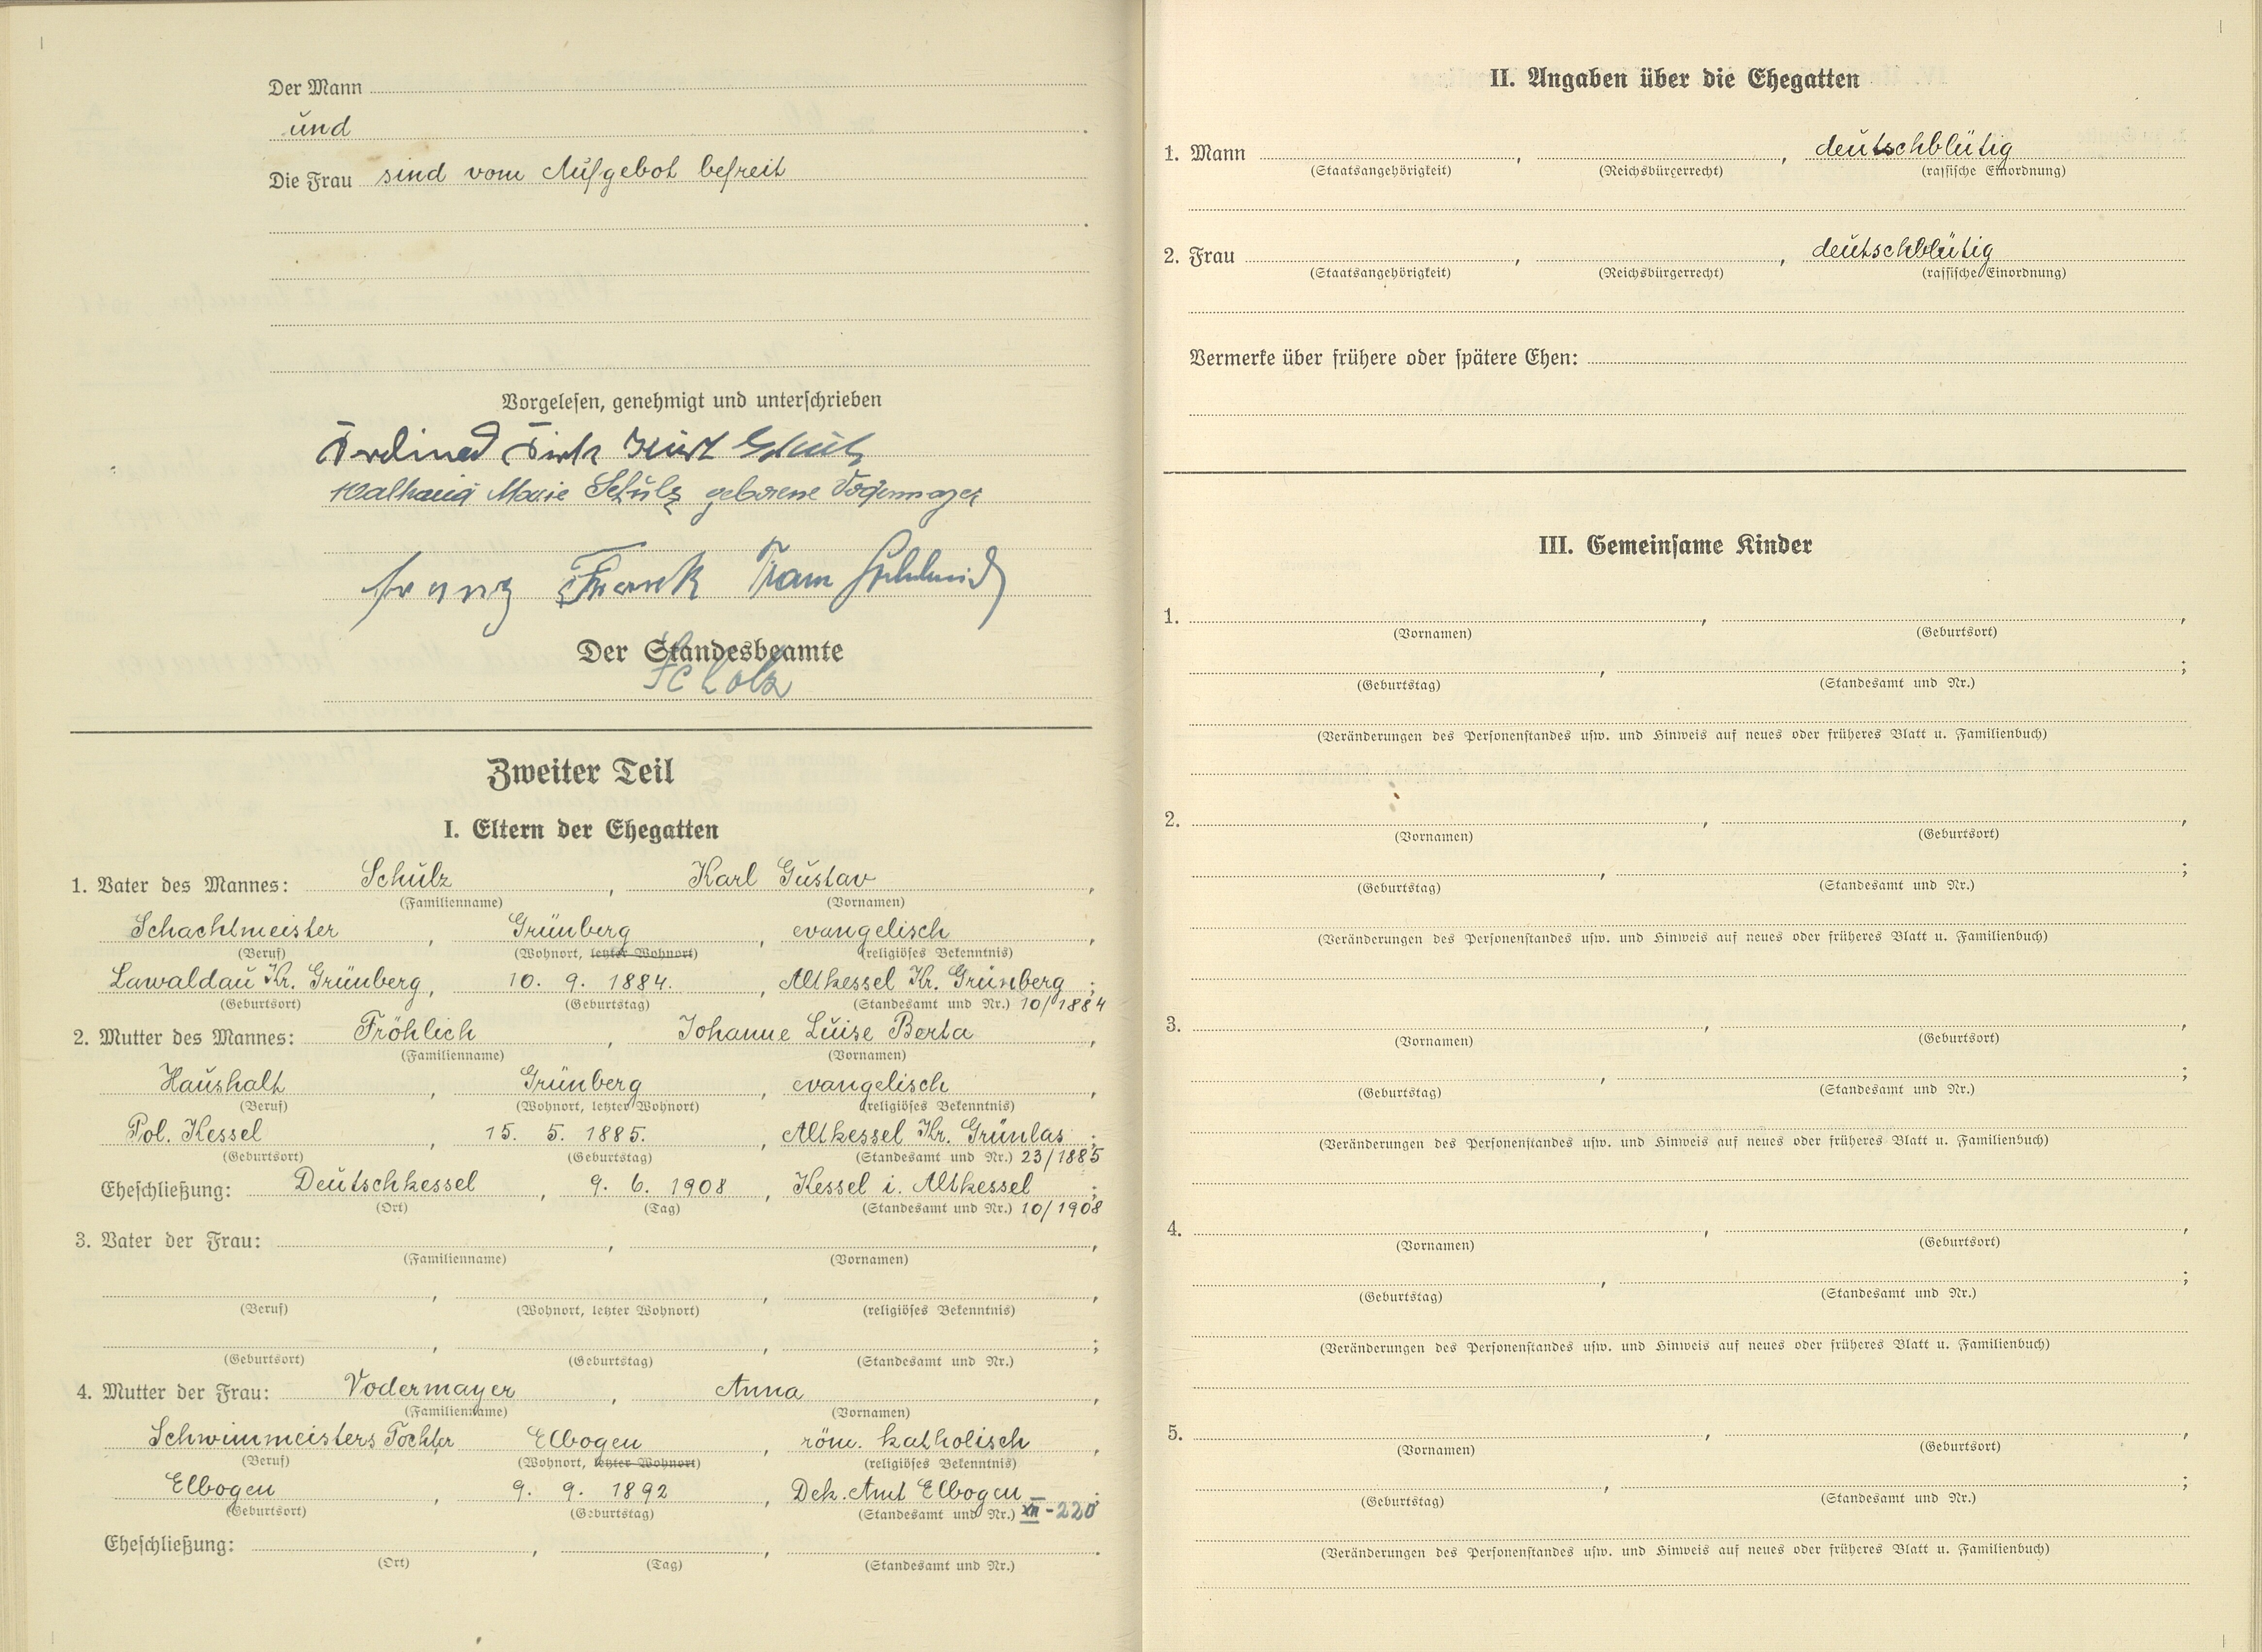 Der Mann
und
Die Frau sind vom Aufgebot befreit
Vorgelesen, genehmigt und unterschrieben
Kurt Schulz
Marie Schulz geborene Vodermayer
Franz Frank Schmid
Der Standesbeamte
Scholz
Zweiter Teil
I. Eltern der Ehegatten
1. Vater des Mannes: Schulz, Karl Gustav,
(Familienname) (Vornamen)
Schachtmeister, Grünberg, evangelisch,
(Beruf) (Wohnort, letzter Wohnort) (religiöses Bekenntnis)
Lawaldau Kr. Grünberg, 10. 9. 1884., Altkessel Kr. Grünberg;
(Geburtsort) (Geburtstag) (Standesamt und Nr.) 10/1884
2. Mutter des Mannes: Fröhlich, Johanne Luise Berta,
(Familienname) (Vornamen)
Haushalt, Grünberg, evangelisch,
(Beruf) (Wohnort, letzter Wohnort) (religiöses Bekenntnis)
Pol. Kessel, 15. 5. 1885., Altkessel Kr. Grünlas;
(Geburtsort) (Geburtstag) (Standesamt und Nr.) 23/1885
Eheschließung: Deutschkessel, 9. 6. 1908, Kessel i. Altkessel;
(Ort) (Tag) (Standesamt und Nr.) 10/1908
3. Vater der Frau: , ,
(Familienname) (Vornamen)
, , ,
(Beruf) (Wohnort, letzter Wohnort) (religiöses Bekenntnis)
, , ;
(Geburtsort) (Geburtstag) (Standesamt und Nr.)
4. Mutter der Frau: Vodermayer, Anna,
(Familienname) (Vornamen)
Schwimmeisters Tochter Elbogen, röm. katholisch,
(Beruf) (Wohnort, letzter Wohnort) (religiöses Bekenntnis)
Elbogen, 9. 9. 1892, Dek. Amt Elbogen;
(Geburtsort) (Geburtstag) (Standesamt und Nr.) XII-220
Eheschließung: , , .
(Ort) (Tag) (Standesamt und Nr.)
II. Angaben über die Ehegatten
1. Mann , , deutschblütig
(Staatsangehörigkeit) (Reichsbürgerrecht) (rassische Einordnung)
2. Frau , , deutschblütig
(Staatsangehörigkeit) (Reichsbürgerrecht) (rassische Einordnung)
Vermerke über frühere oder spätere Ehen:
III. Gemeinsame Kinder
1. , ,
(Vornamen) (Geburtsort)
, ;
(Geburtstag) (Standesamt und Nr.)
(Veränderungen des Personenstandes usw. und Hinweis auf neues oder früheres Blatt u. Familienbuch)
2. , ,
(Vornamen) (Geburtsort)
, ;
(Geburtstag) (Standesamt und Nr.)
(Veränderungen des Personenstandes usw. und Hinweis auf neues oder früheres Blatt u. Familienbuch)
3. , ,
(Vornamen) (Geburtsort)
, ;
(Geburtstag) (Standesamt und Nr.)
(Veränderungen des Personenstandes usw. und Hinweis auf neues oder früheres Blatt u. Familienbuch)
4. , ,
(Vornamen) (Geburtsort)
, ;
(Geburtstag) (Standesamt und Nr.)
(Veränderungen des Personenstandes usw. und Hinweis auf neues oder früheres Blatt u. Familienbuch)
5. , ,
(Vornamen) (Geburtsort)
, ;
(Geburtstag) (Standesamt und Nr.)
(Veränderungen des Personenstandes usw. und Hinweis auf neues oder früheres Blatt u. Familienbuch)